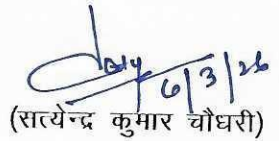 6/3/26
(सत्येन्द्र कुमार चौधरी)